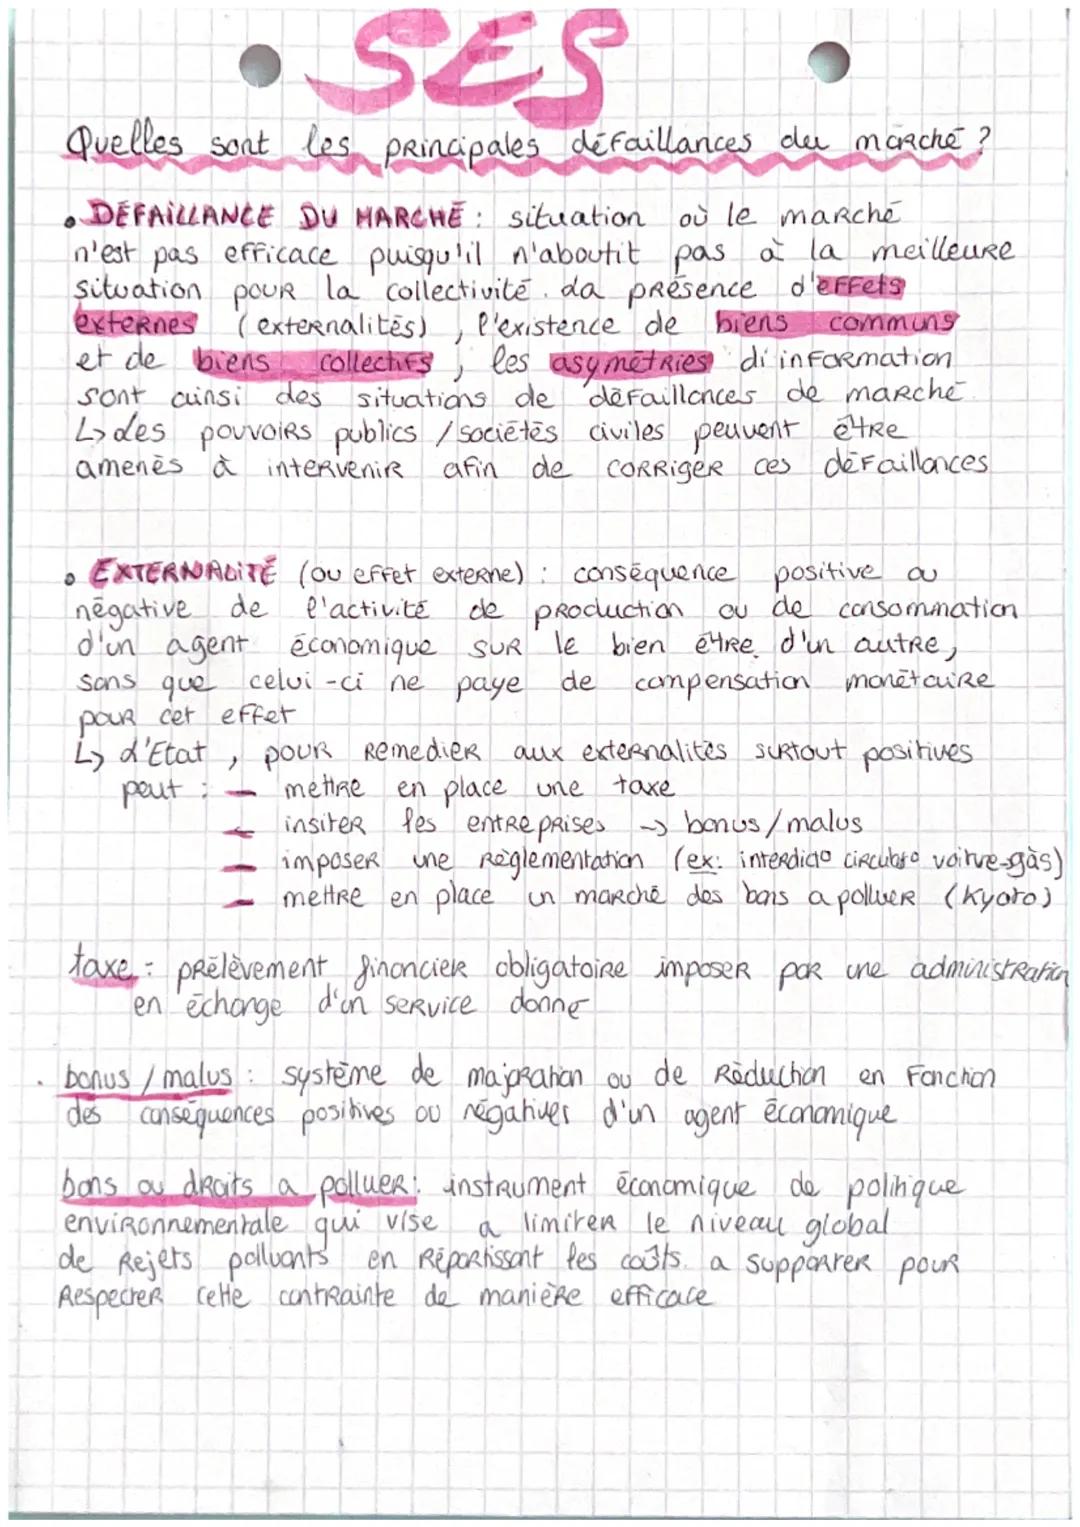 SES
Quelles sont les principales défaillances du marché ?
• DÉFAILLANCE DU MARCHÉ : situation où le marché
n'est pas efficace puisqu'il n'aboutit pas à la meilleure
situation pour la collectivité. La présence d'effets
externes (externalités), l'existence de biens communs
et de biens collectifs, les asymétries d'information
sont ainsi des situations de défaillances de marché
↳ Les pouvoirs publics / sociétés civiles peuvent être
amenés à intervenir afin de corriger ces défaillances
• EXTERNALITÉ (ou effet externe) : conséquence positive ou
négative de l'activité de production ou de consommation
d'un agent économique sur le bien être d'un autre,
sans que celui-ci ne paye de compensation monétaire
pour cet effet
↳ L'Etat, pour remedier aux externalités surtout positives
peut : - mettre en place une taxe
- insiter les entreprises → bonus/malus
- imposer une règlementation (ex: interdicto circulato voitre-gàs)
- mettre en place un marché des bons a polluer (Kyoto)
taxe : prélèvement financier obligatoire imposer par une administration
en échange d'un service donné
. bonus / malus : système de majoration ou de réduction en fonction
des conséquences positives ou négatives d'un agent économique
bons ou droits a polluer : instrument économique de politique
environnementale qui vise a limiter le niveau global
de rejets polluants en répartissant les coûts a supporter pour
respecter cette contrainte de manière efficace